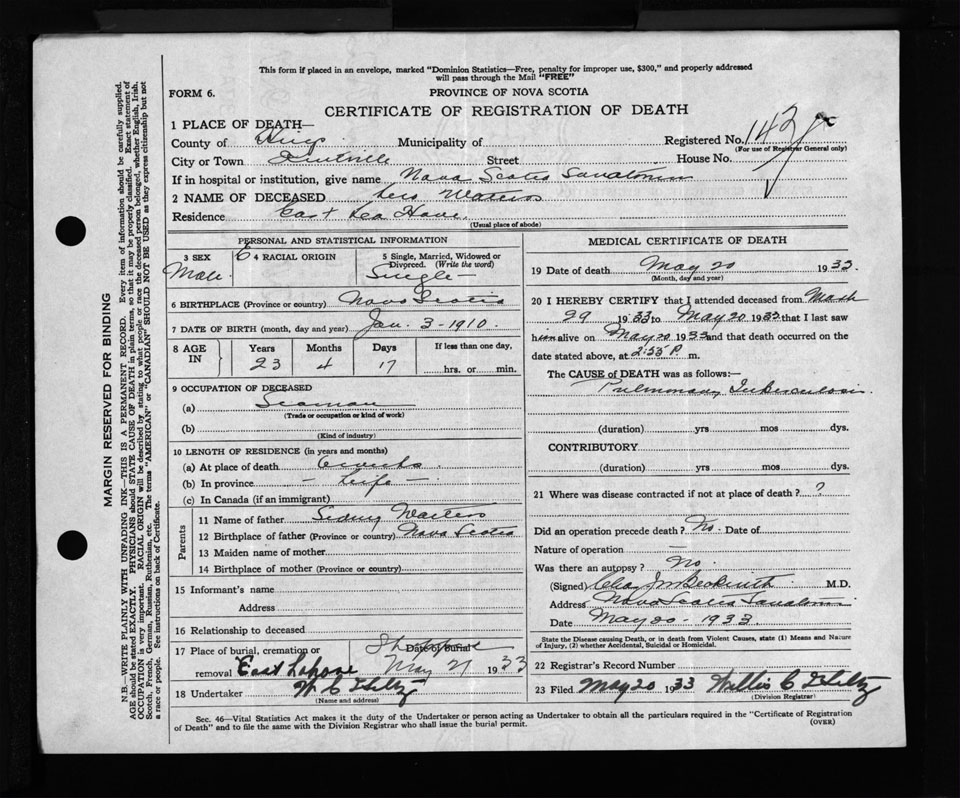 This form if placed in an envelope, marked "Dominion Statistics—Free, penalty for improper use, $300," and properly addressed
will pass through the Mail "FREE"
FORM 6.
PROVINCE OF NOVA SCOTIA
CERTIFICATE OF REGISTRATION OF DEATH
1 PLACE OF DEATH—
County of Kings Municipality of Registered No. 143
(For use of Registrar General only)
City or Town Kentville Street House No.
If in hospital or institution, give name Nova Scotia Sanatorium
2 NAME OF DECEASED Waters
Residence East La Have
(Usual place of abode)
PERSONAL AND STATISTICAL INFORMATION
3 SEX E 4 RACIAL ORIGIN 5 Single, Married, Widowed or
Divorced. (Write the word)
Male Single
6 BIRTHPLACE (Province or country) Nova Scotia
7 DATE OF BIRTH (month, day and year) Jan. 3-1910.
8 AGE IN Years Months Days If less than one day,
23 4 17 hrs. or min.
9 OCCUPATION OF DECEASED
(a) Seaman
(Trade or occupation or kind of work)
(b)
(Kind of industry)
10 LENGTH OF RESIDENCE (in years and months)
(a) At place of death
(b) In province — Life —
(c) In Canada (if an immigrant)
Parents
11 Name of father Sidney Waters
12 Birthplace of father (Province or country) Nova Scotia
13 Maiden name of mother
14 Birthplace of mother (Province or country)
15 Informant's name
Address
16 Relationship to deceased
17 Place of burial, cremation or Date of Burial
removal East Lahave May 21 1933
18 Undertaker W C
(Name and address)
MEDICAL CERTIFICATE OF DEATH
19 Date of death May 20 1933
(Month, day and year)
20 I HEREBY CERTIFY that I attended deceased from
29 1933 to May 20 1933 that I last saw
him alive on May 20 1933 and that death occurred on the
date stated above, at 2:55 P. m.
The CAUSE of DEATH was as follows:—
Pulmonary Tuberculosis
(duration) yrs mos dys.
CONTRIBUTORY
(duration) yrs. mos. dys.
21 Where was disease contracted if not at place of death? ?
Did an operation precede death? No. Date of
Nature of operation
Was there an autopsy? No.
(Signed) Chas J Beckwith M.D.
Address Nova Scotia Sanatorium
Date May 20 - 1933
State the Disease causing Death, or in death from Violent Causes, state (1) Means and Nature
of Injury, (2) whether Accidental, Suicidal or Homicidal.
22 Registrar's Record Number
23 Filed May 20 1933 Willis C
(Division Registrar)
Sec. 46—Vital Statistics Act makes it the duty of the Undertaker or person acting as Undertaker to obtain all the particulars required in the "Certificate of Registration
of Death" and to file the same with the Division Registrar who shall issue the burial permit. (OVER)
MARGIN RESERVED FOR BINDING
N.B.—WRITE PLAINLY WITH UNFADING INK—THIS IS A PERMANENT RECORD. Every item of information should be carefully supplied.
AGE should be stated EXACTLY. PHYSICIANS should STATE CAUSE OF DEATH in plain terms, so that it may be properly classified. Exact statement of
OCCUPATION is very important. RACIAL ORIGIN will be described by stating to what people or race the deceased person belonged, whether English, Irish,
Scotch, French, German, Russian, Ruthenian, etc. The terms "AMERICAN" or "CANADIAN" SHOULD NOT BE USED as they express citizenship but not
a race or people. See instructions on back of Certificate.